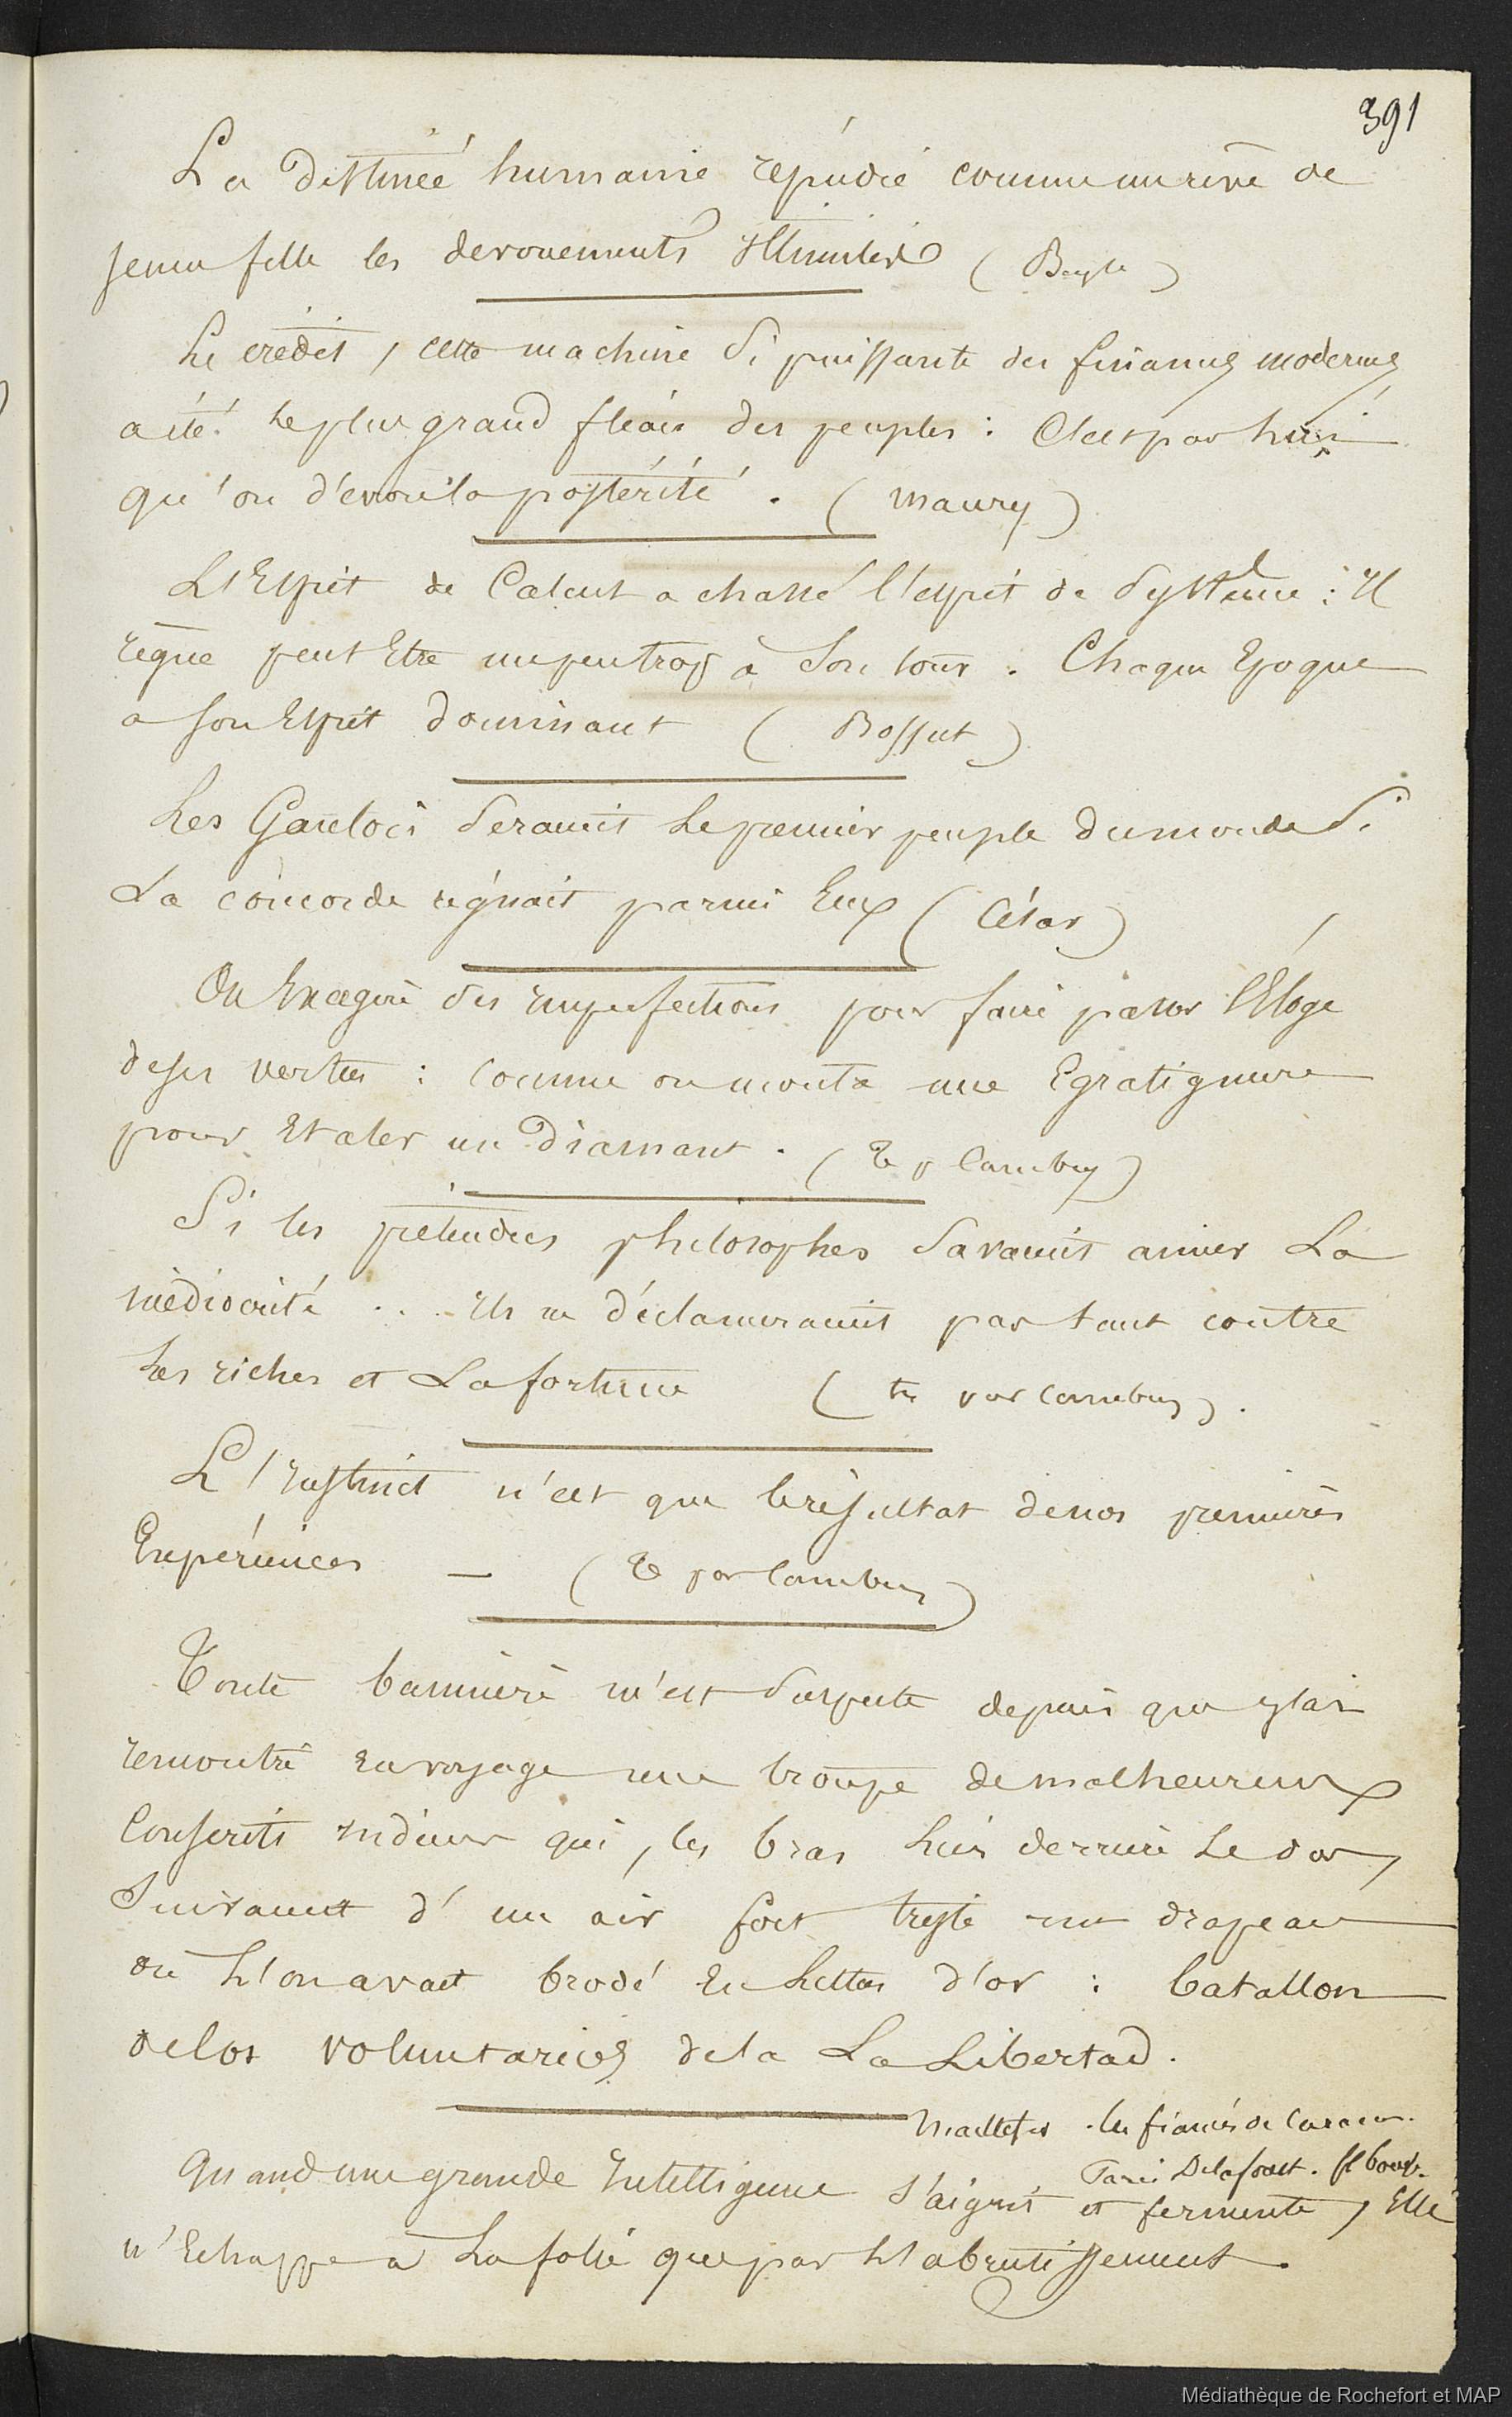 391
La destinée humaine répudie comme un rêve de
jeune fille les dévouements illimités (Bayle)
Le crédit, cette machine si puissante des finances modernes
a été le plus grand fléau des peuples : C'est par lui
qu'on dévoue la postérité. (Maury)
L'Esprit de Calcul a chassé l'esprit de Système : Il
règne peut Etre un peu trop à Son tour. Chaque Epoque
a son Esprit dominant (Bossut)
Les Gaulois Seraient le premier peuple du monde Si
La concorde régnait parmi Eux (César)
On Exagère des imperfections pour faire passer l'Eloge
de ses vertus : comme on montre une Egratignure
pour Etaler un Diamant. (Te p Cambry)
Si les prétendus philosophes Savaient aimer La
médiocrité ... Ils ne déclameraient pas tant contre
Les riches et La fortune (te par Cambry).
L'Instinct n'est que le résultat de nos premières
Expériences — (Te par Cambry)
Toute bannière m'est Suspecte depuis que j'ai
rencontré En voyage une troupe de malheureux
Conscrits indiens qui, les bras liés derrière Le dos,
Suivaient d'un air fort triste un drapeau
où L'on avait brodé En Lettres d'or : batallon
de los voluntarios de la La Libertad.
les fiancés de
Quand une grande Intelligence S'aigrit et fermente, Elle
n'Echappe à La folie que par L'abrutissement.
Médiathèque de Rochefort et MAP